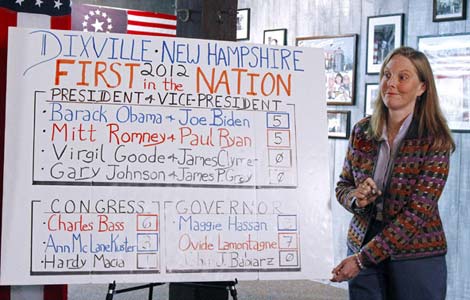 DIXVILLE • NEW HAMPSHIRE
FIRST 2012 in the NATION
PRESIDENT & VICE-PRESIDENT
• Barack Obama & Joe Biden 5
• Mitt Romney & Paul Ryan 5
• Virgil Goode & James Clymer 0
• Gary Johnson & James P. Gray 0
CONGRESS
• Charles Bass 6
• Ann McLane Kuster
• Hardy Macia
GOVERNOR
• Maggie Hassan
• Ovide Lamontagne 7
John J. Babiarz 0